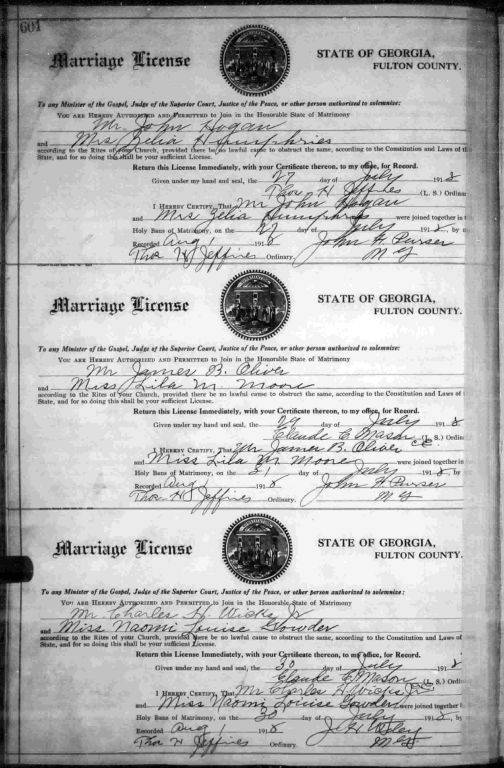 601
Marriage License
STATE OF GEORGIA,
FULTON COUNTY.
To any Minister of the Gospel, Judge of the Superior Court, Justice of the Peace, or other person authorized to solemnize:
YOU ARE HEREBY AUTHORIZED AND PERMITTED to Join in the Honorable State of Matrimony
Mr. John Hogan
and Mrs. Zelia Humphries
according to the Rites of your Church, provided there be no lawful cause to obstruct the same, according to the Constitution and Laws of th
State, and for so doing this shall be your sufficient License.
Return this License Immediately, with your Certificate thereon, to my office, for Record.
Given under my hand and seal, the 27 day of July 1918
Thos H Jeffries (L. S.) Ordinar
I HEREBY CERTIFY, That Mr John Hogan
and Mrs Zelia Humphries were joined together in t
Holy Bans of Matrimony, on the 27 day of July 1918, by m
Recorded Aug 1 1918 John H. Purser
Thos H Jeffries Ordinary. M G
Marriage License
STATE OF GEORGIA,
FULTON COUNTY.
To any Minister of the Gospel, Judge of the Superior Court, Justice of the Peace, or other person authorized to solemnize:
YOU ARE HEREBY AUTHORIZED AND PERMITTED to Join in the Honorable State of Matrimony
Mr James B. Oliver
and Miss Lila M. Moore
according to the Rites of your Church, provided there be no lawful cause to obstruct the same, according to the Constitution and Laws of
State, and for so doing this shall be your sufficient License.
Return this License Immediately, with your Certificate thereon, to my office, for Record.
Given under my hand and seal, the 29 day of July 1918
Claude C. Mason (L. S.) Ordin
I HEREBY CERTIFY, That Mr James B. Oliver
and Miss Lila M Moore were joined together in
Holy Bans of Matrimony, on the day of July 1918, by
Recorded Aug 1 1918 John H. Purser
Thos H Jeffries Ordinary. M G
Marriage License
STATE OF GEORGIA,
FULTON COUNTY.
To any Minister of the Gospel, Judge of the Superior Court, Justice of the Peace, or other person authorized to solemnize:
YOU ARE HEREBY AUTHORIZED AND PERMITTED to Join in the Honorable State of Matrimony
Mr. Charles H. Jr
and Miss Naomi Louise Gowder
according to the Rites of your Church, provided there be no lawful cause to obstruct the same, according to the Constitution and Laws of
State, and for so doing this shall be your sufficient License.
Return this License Immediately, with your Certificate thereon, to my office, for Record.
Given under my hand and seal, the 30 day of July 1918
Claude C. Mason (L. S.) Ordi
I HEREBY CERTIFY, That Mr Charles H Jr
and Miss Naomi Louise Gowder were joined together in
Holy Bans of Matrimony, on the 30 day of July 1918, by
Recorded Aug 1 1918
Thos H Jeffries Ordinary. M G